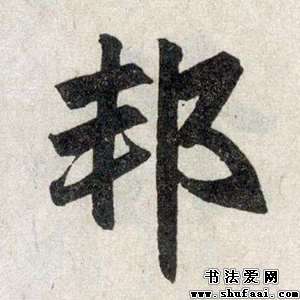 邦
书法爱网
www.shufaai.com